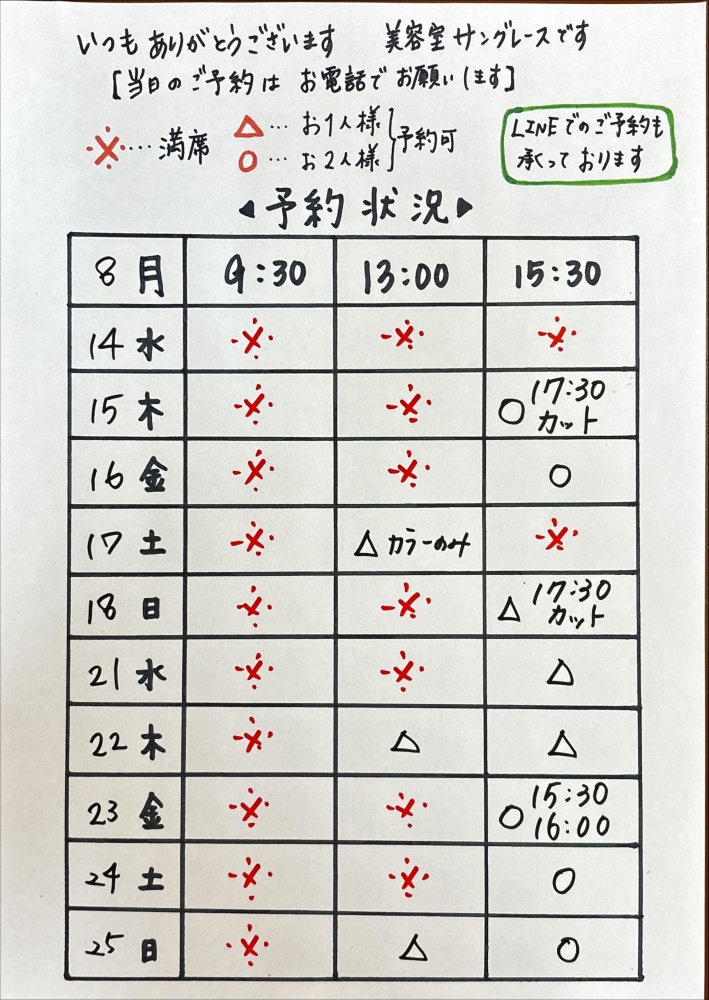 いつも ありがとうございます 美容室 サングレースです
[当日の ご予約は お電話で お願いします]
※… 満席
△… お1人様
○… お2人様
予約可
LINEでのご予約も
承って おります
◀予約 状況▶
8月 9:30 13:00 15:30
14 水 ※ ※ ※
15 木 ※ ※ ○ 17:30 カット
16 金 ※ ※ ○
17 土 ※ △ カラーのみ ※
18 日 ※ ※ △ 17:30 カット
21 水 ※ ※ △
22 木 ※ △ △
23 金 ※ ※ ○ 15:30 16:00
24 土 ※ ※ ○
25 日 ※ △ ○